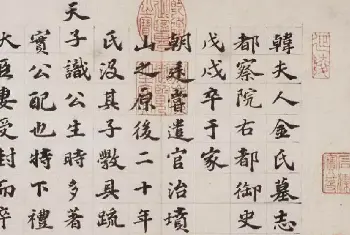 韓夫人金氏墓志
都察院右都御史
戊戌卒于家
朝廷嘗遣官治墳
山之原後二十年
氏沒其子具疏
天子識公生時多著
寶公配也特下禮
受封而卒